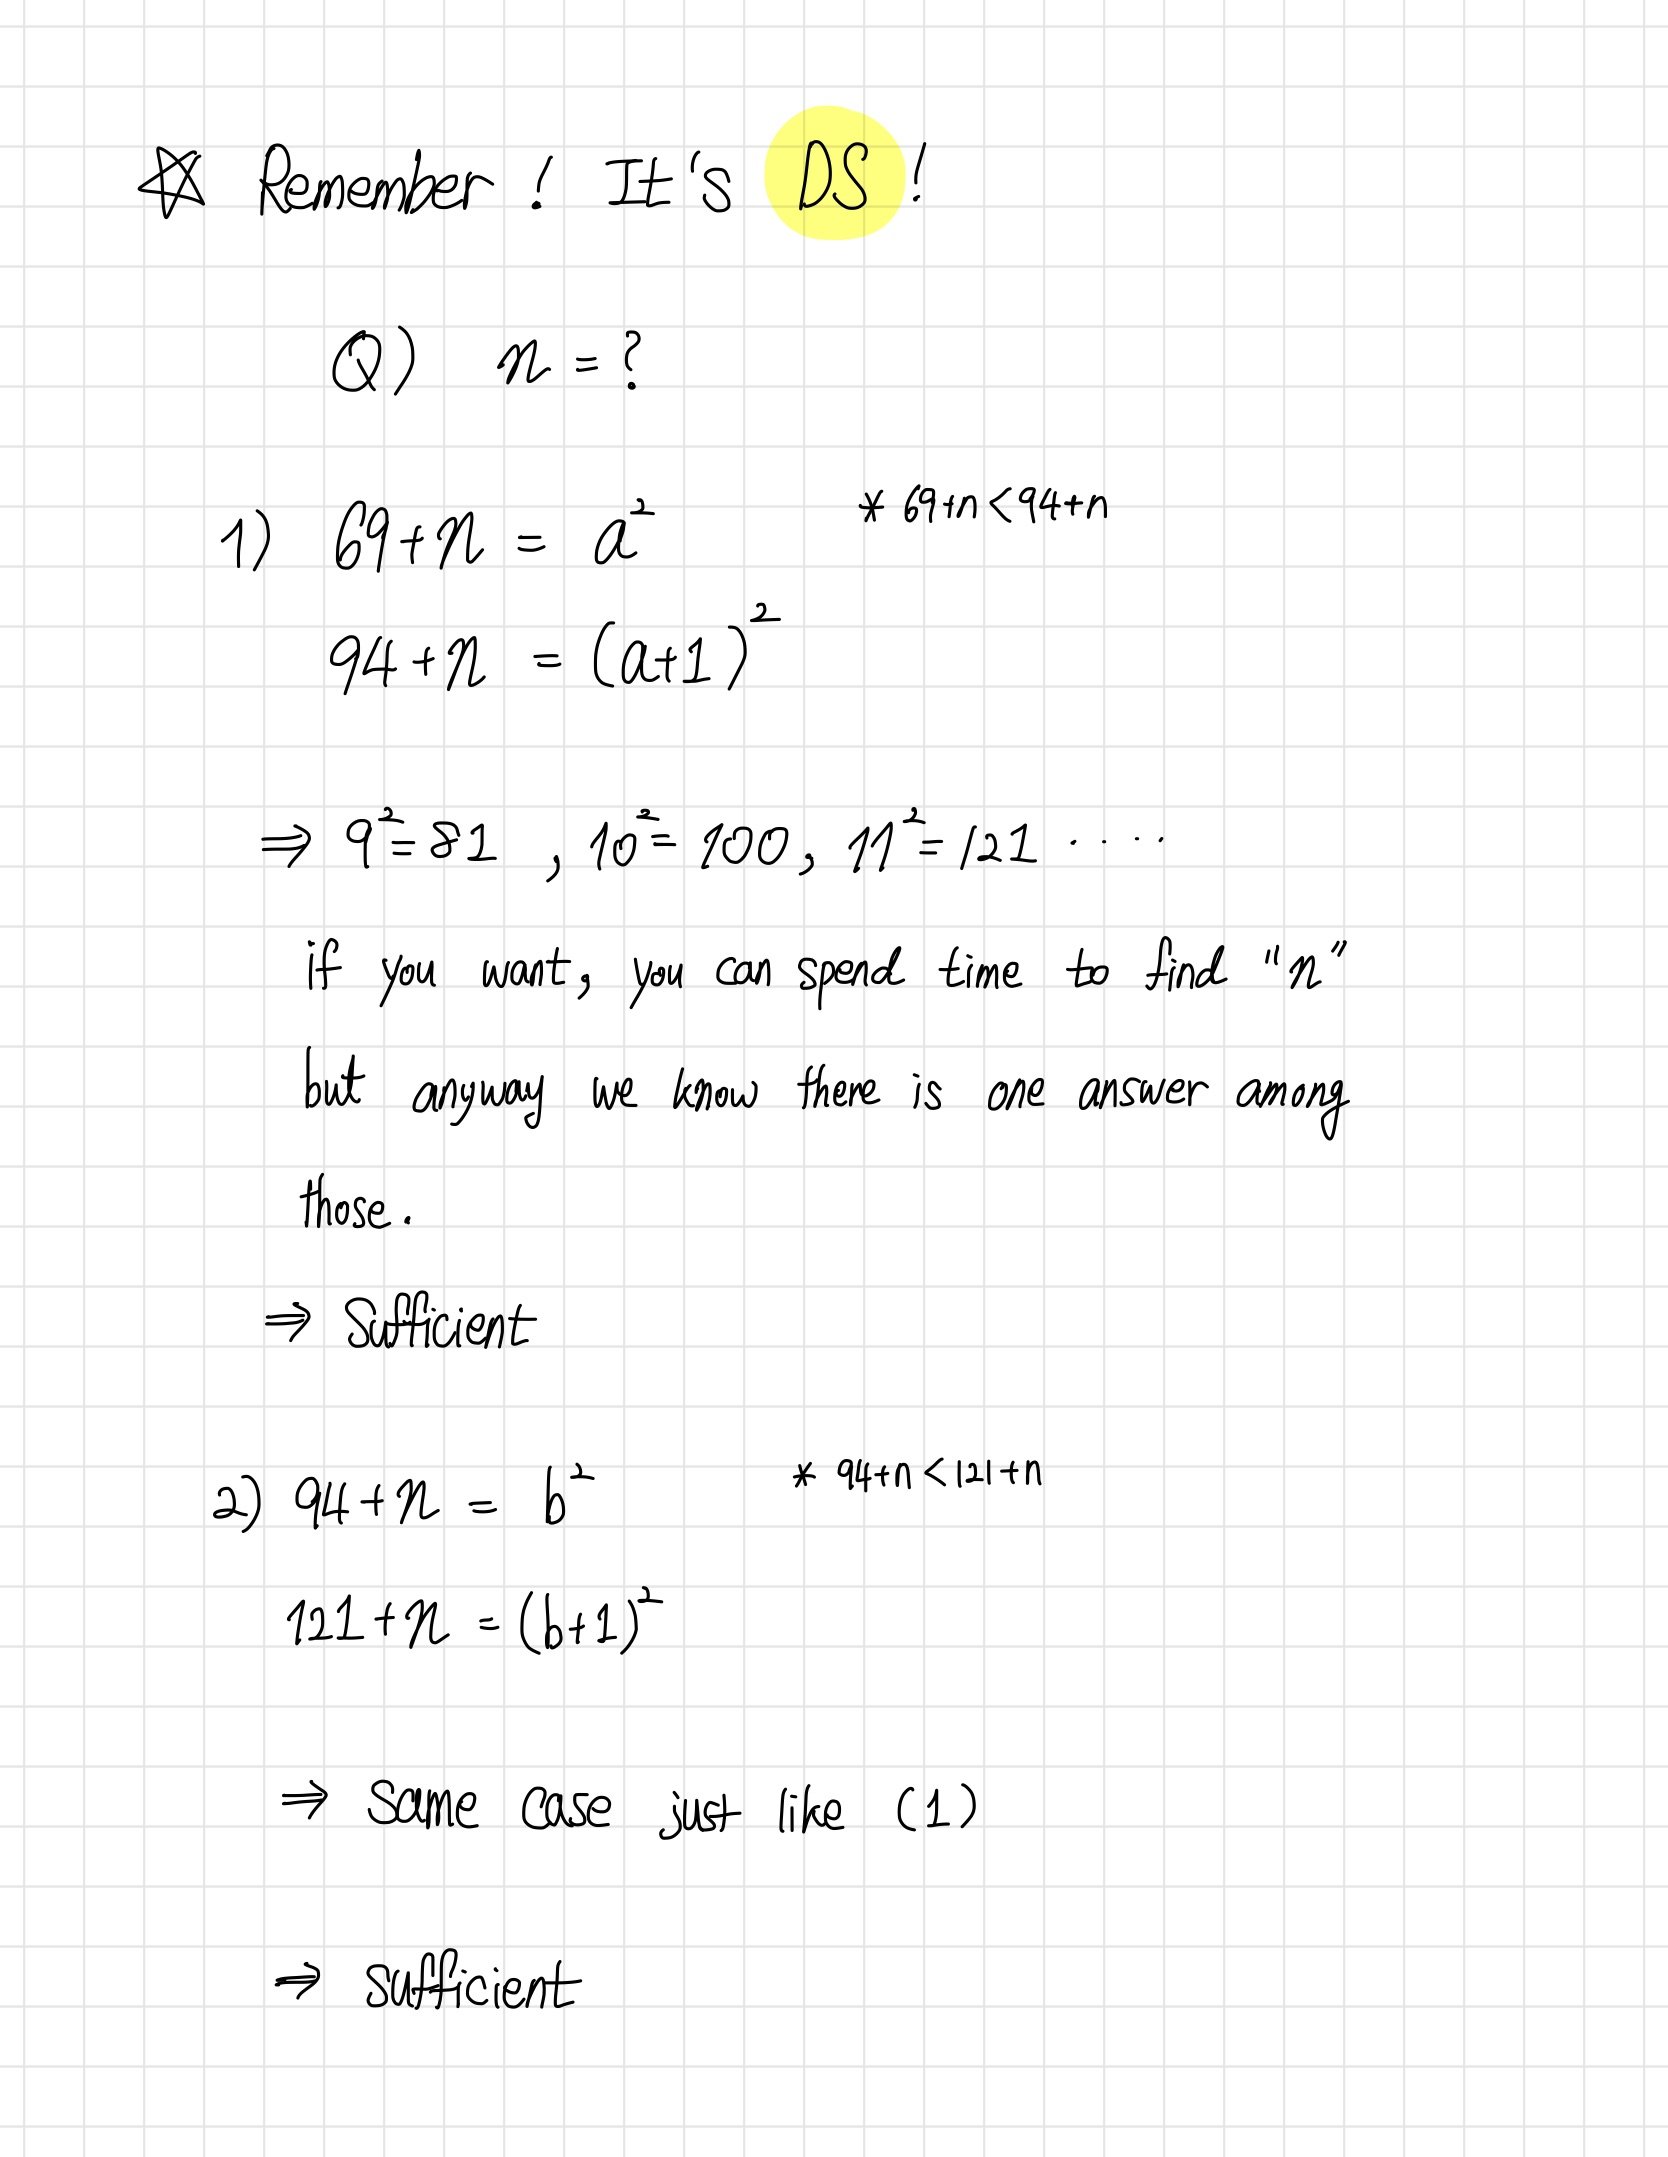 ☆ Remember! It's DS!
Q) n = ?
1) 69+n = a² * 69+n<94+n
94+n = (a+1)²
⇒ 9²=81 , 10²=100, 11²=121 ....
if you want, you can spend time to find "n"
but anyway we know there is one answer among
those.
⇒ Sufficient
2) 94+n = b² * 94+n<121+n
121+n = (b+1)²
⇒ Same case just like (1)
⇒ sufficient